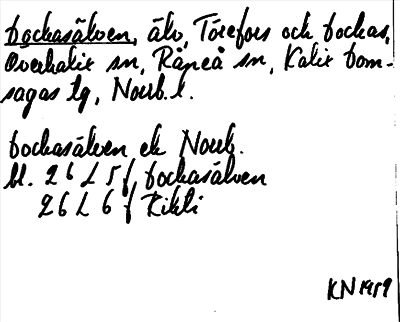 Lockasälven, älv, Törefors och Lockas,
Överkalix sn, Råneå sn, Kalix dom-
sagas tg, Norrb. l.
Lockasälven ek Norrb.
bl. 26 L 5 f Lockasälven
26 L 6 f
KN 1959